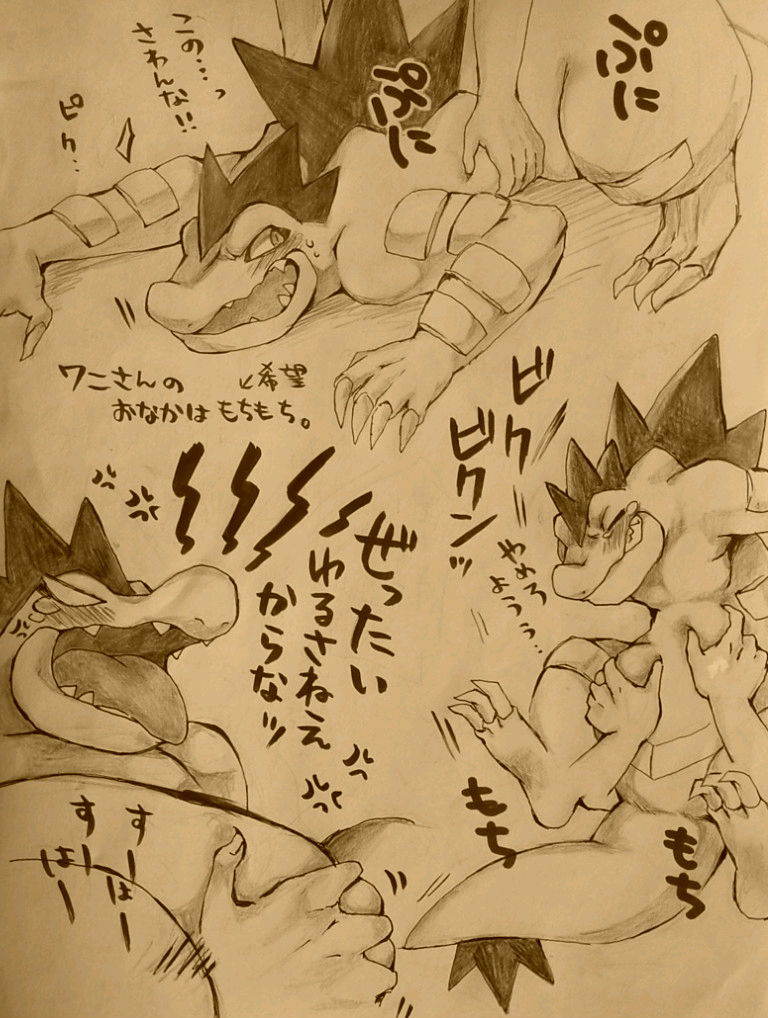 ぷに
ぷに
この…っ
さわんな!!
ピク…
ワニさんの
おなかはもちもち。
←希望
ビクビクンッ
やめろ
よぅぅ…
ぜったい
ゆるさねえ
からなッ
もち
もち
すーはー
すーはー